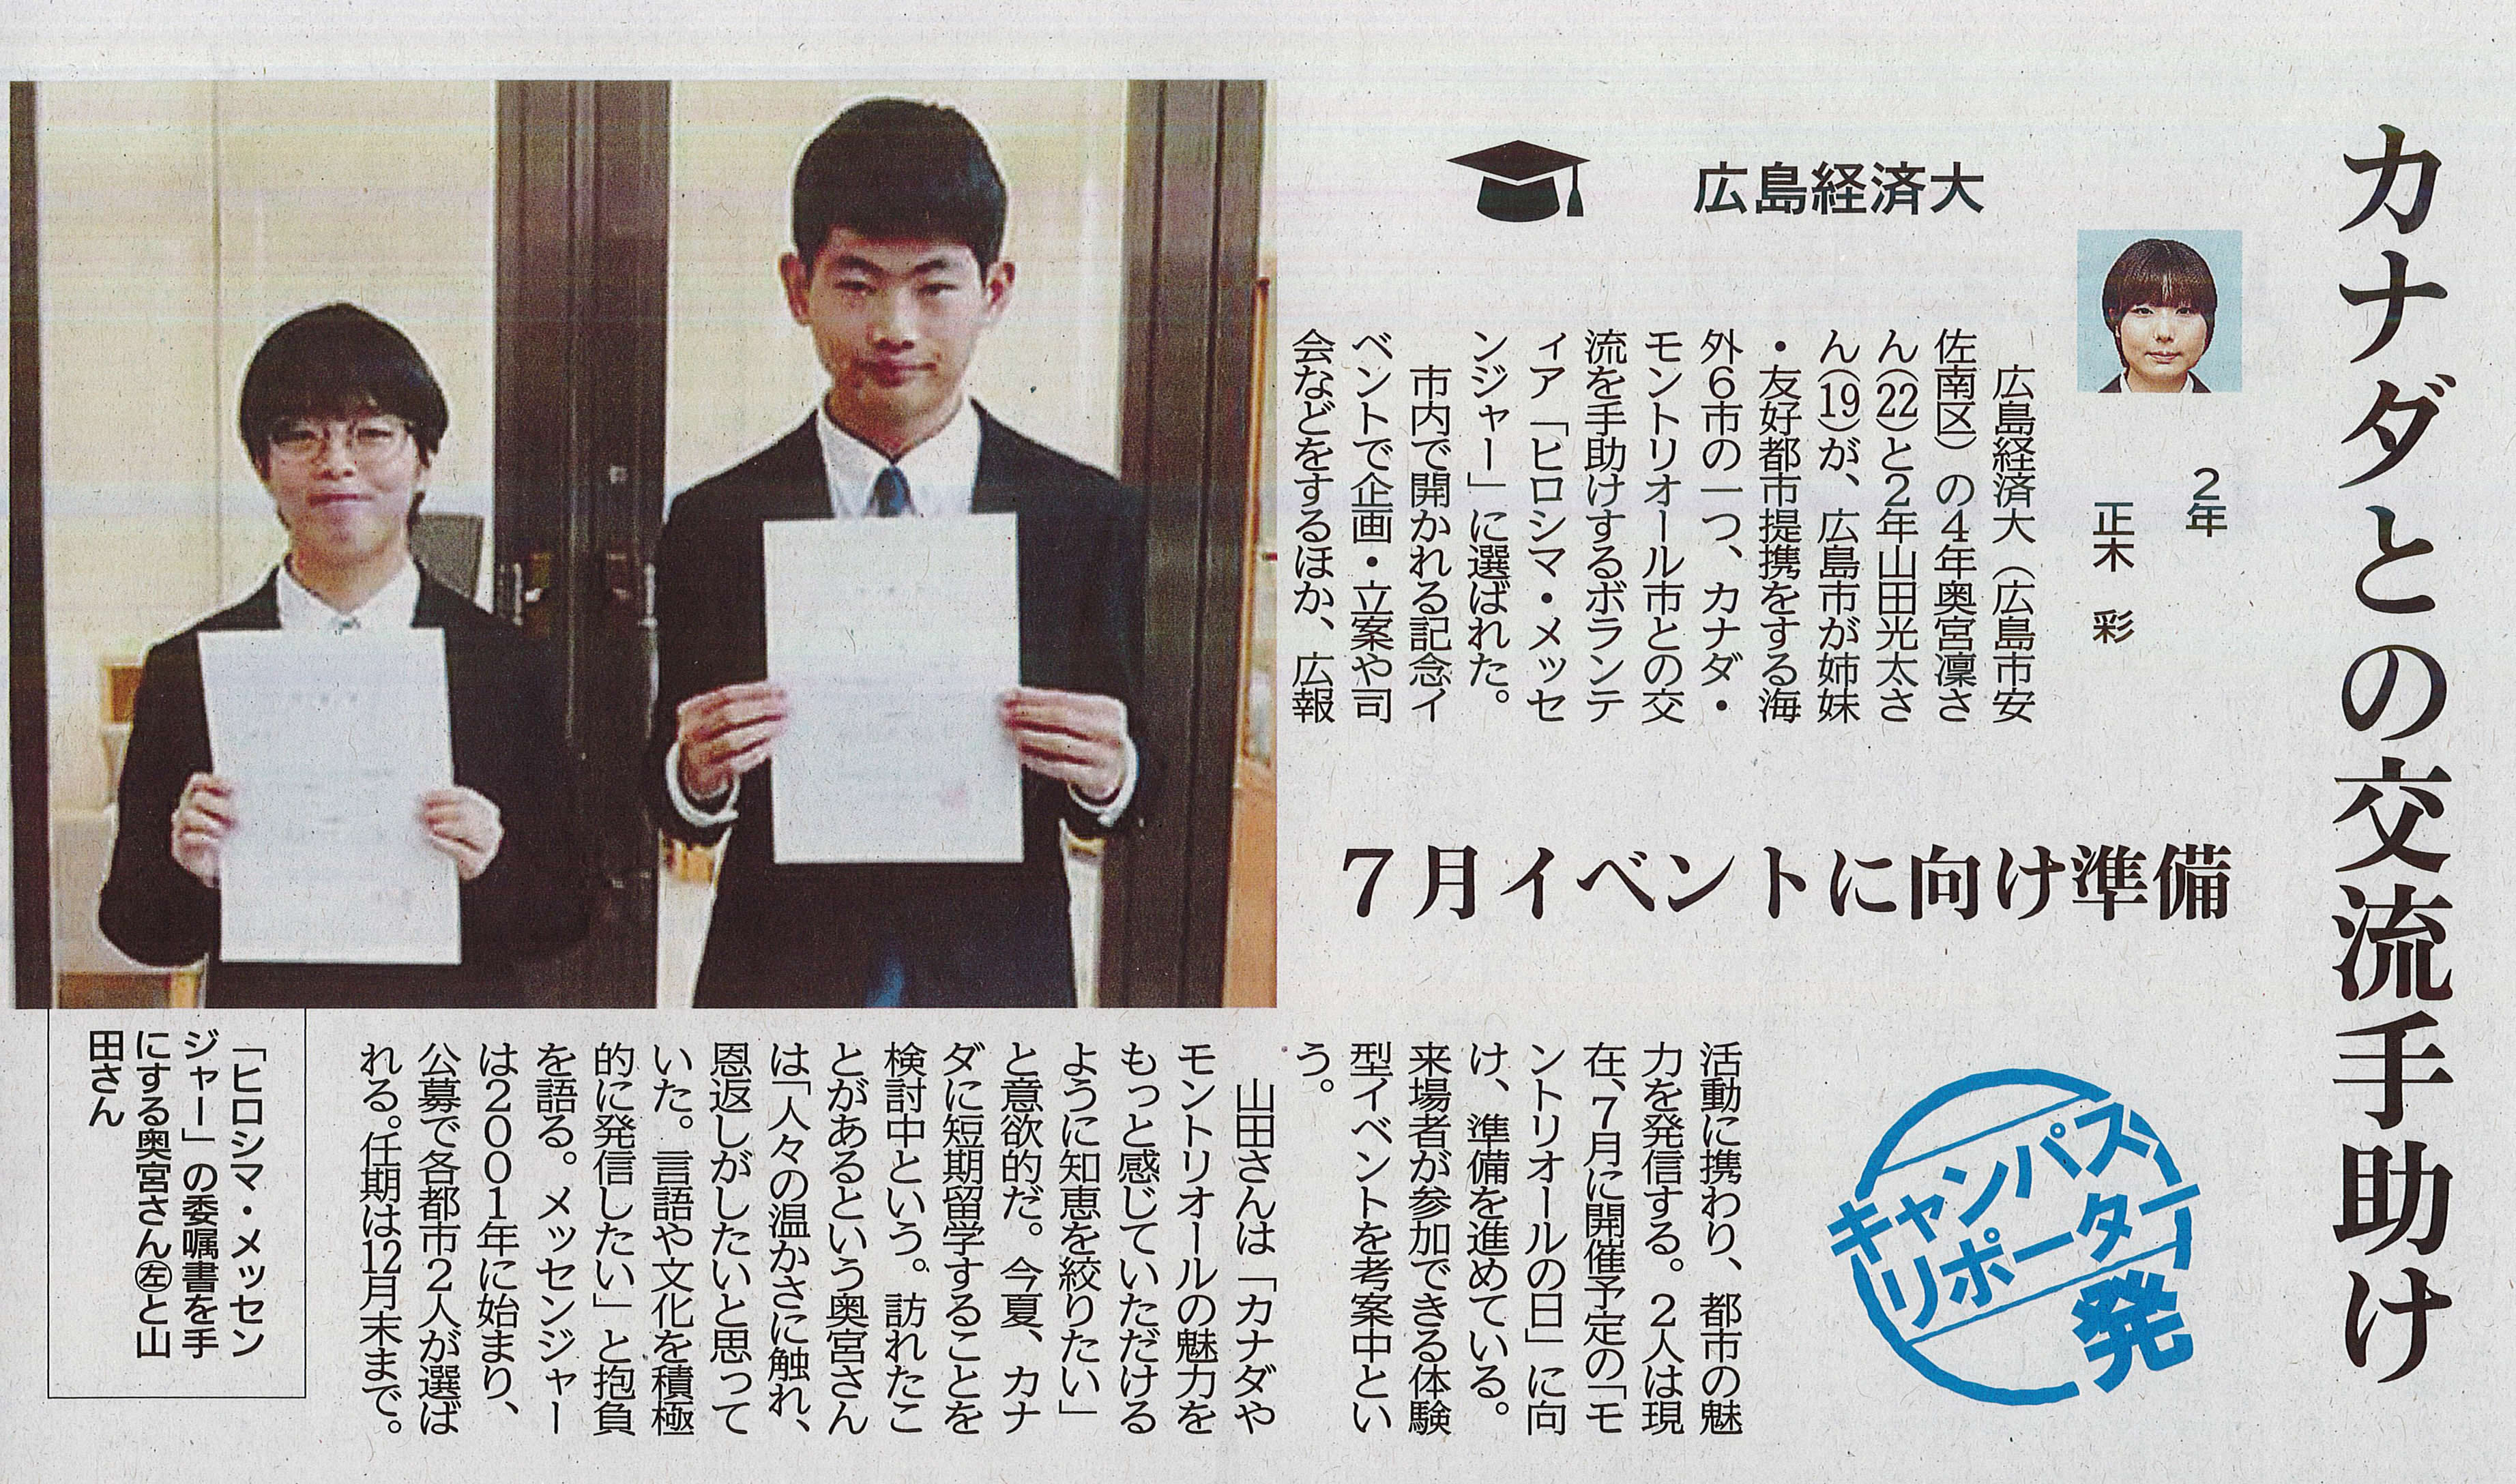 カナダとの交流手助け
広島経済大
2年
正木 彩
7月イベントに向け準備
キャンパス
リポーター
発
広島経済大（広島市安
佐南区）の4年奥宮凜さ
ん(22)と2年山田光太さ
ん(19)が、広島市が姉妹
・友好都市提携をする海
外6市の一つ、カナダ・
モントリオール市との交
流を手助けするボランテ
ィア「ヒロシマ・メッセ
ンジャー」に選ばれた。
市内で開かれる記念イ
ベントで企画・立案や司
会などをするほか、広報
活動に携わり、都市の魅
力を発信する。2人は現
在、7月に開催予定の「モ
ントリオールの日」に向
け、準備を進めている。
来場者が参加できる体験
型イベントを考案中とい
う。
山田さんは「カナダや
モントリオールの魅力を
もっと感じていただける
ように知恵を絞りたい」
と意欲的だ。今夏、カナ
ダに短期留学することを
検討中という。訪れたこ
とがあるという奥宮さん
は「人々の温かさに触れ、
恩返しがしたいと思って
いた。言語や文化を積極
的に発信したい」と抱負
を語る。メッセンジャー
は2001年に始まり、
公募で各都市2人が選ば
れる。任期は12月末まで。
「ヒロシマ・メッセン
ジャー」の委嘱書を手
にする奥宮さん㊧と山
田さん